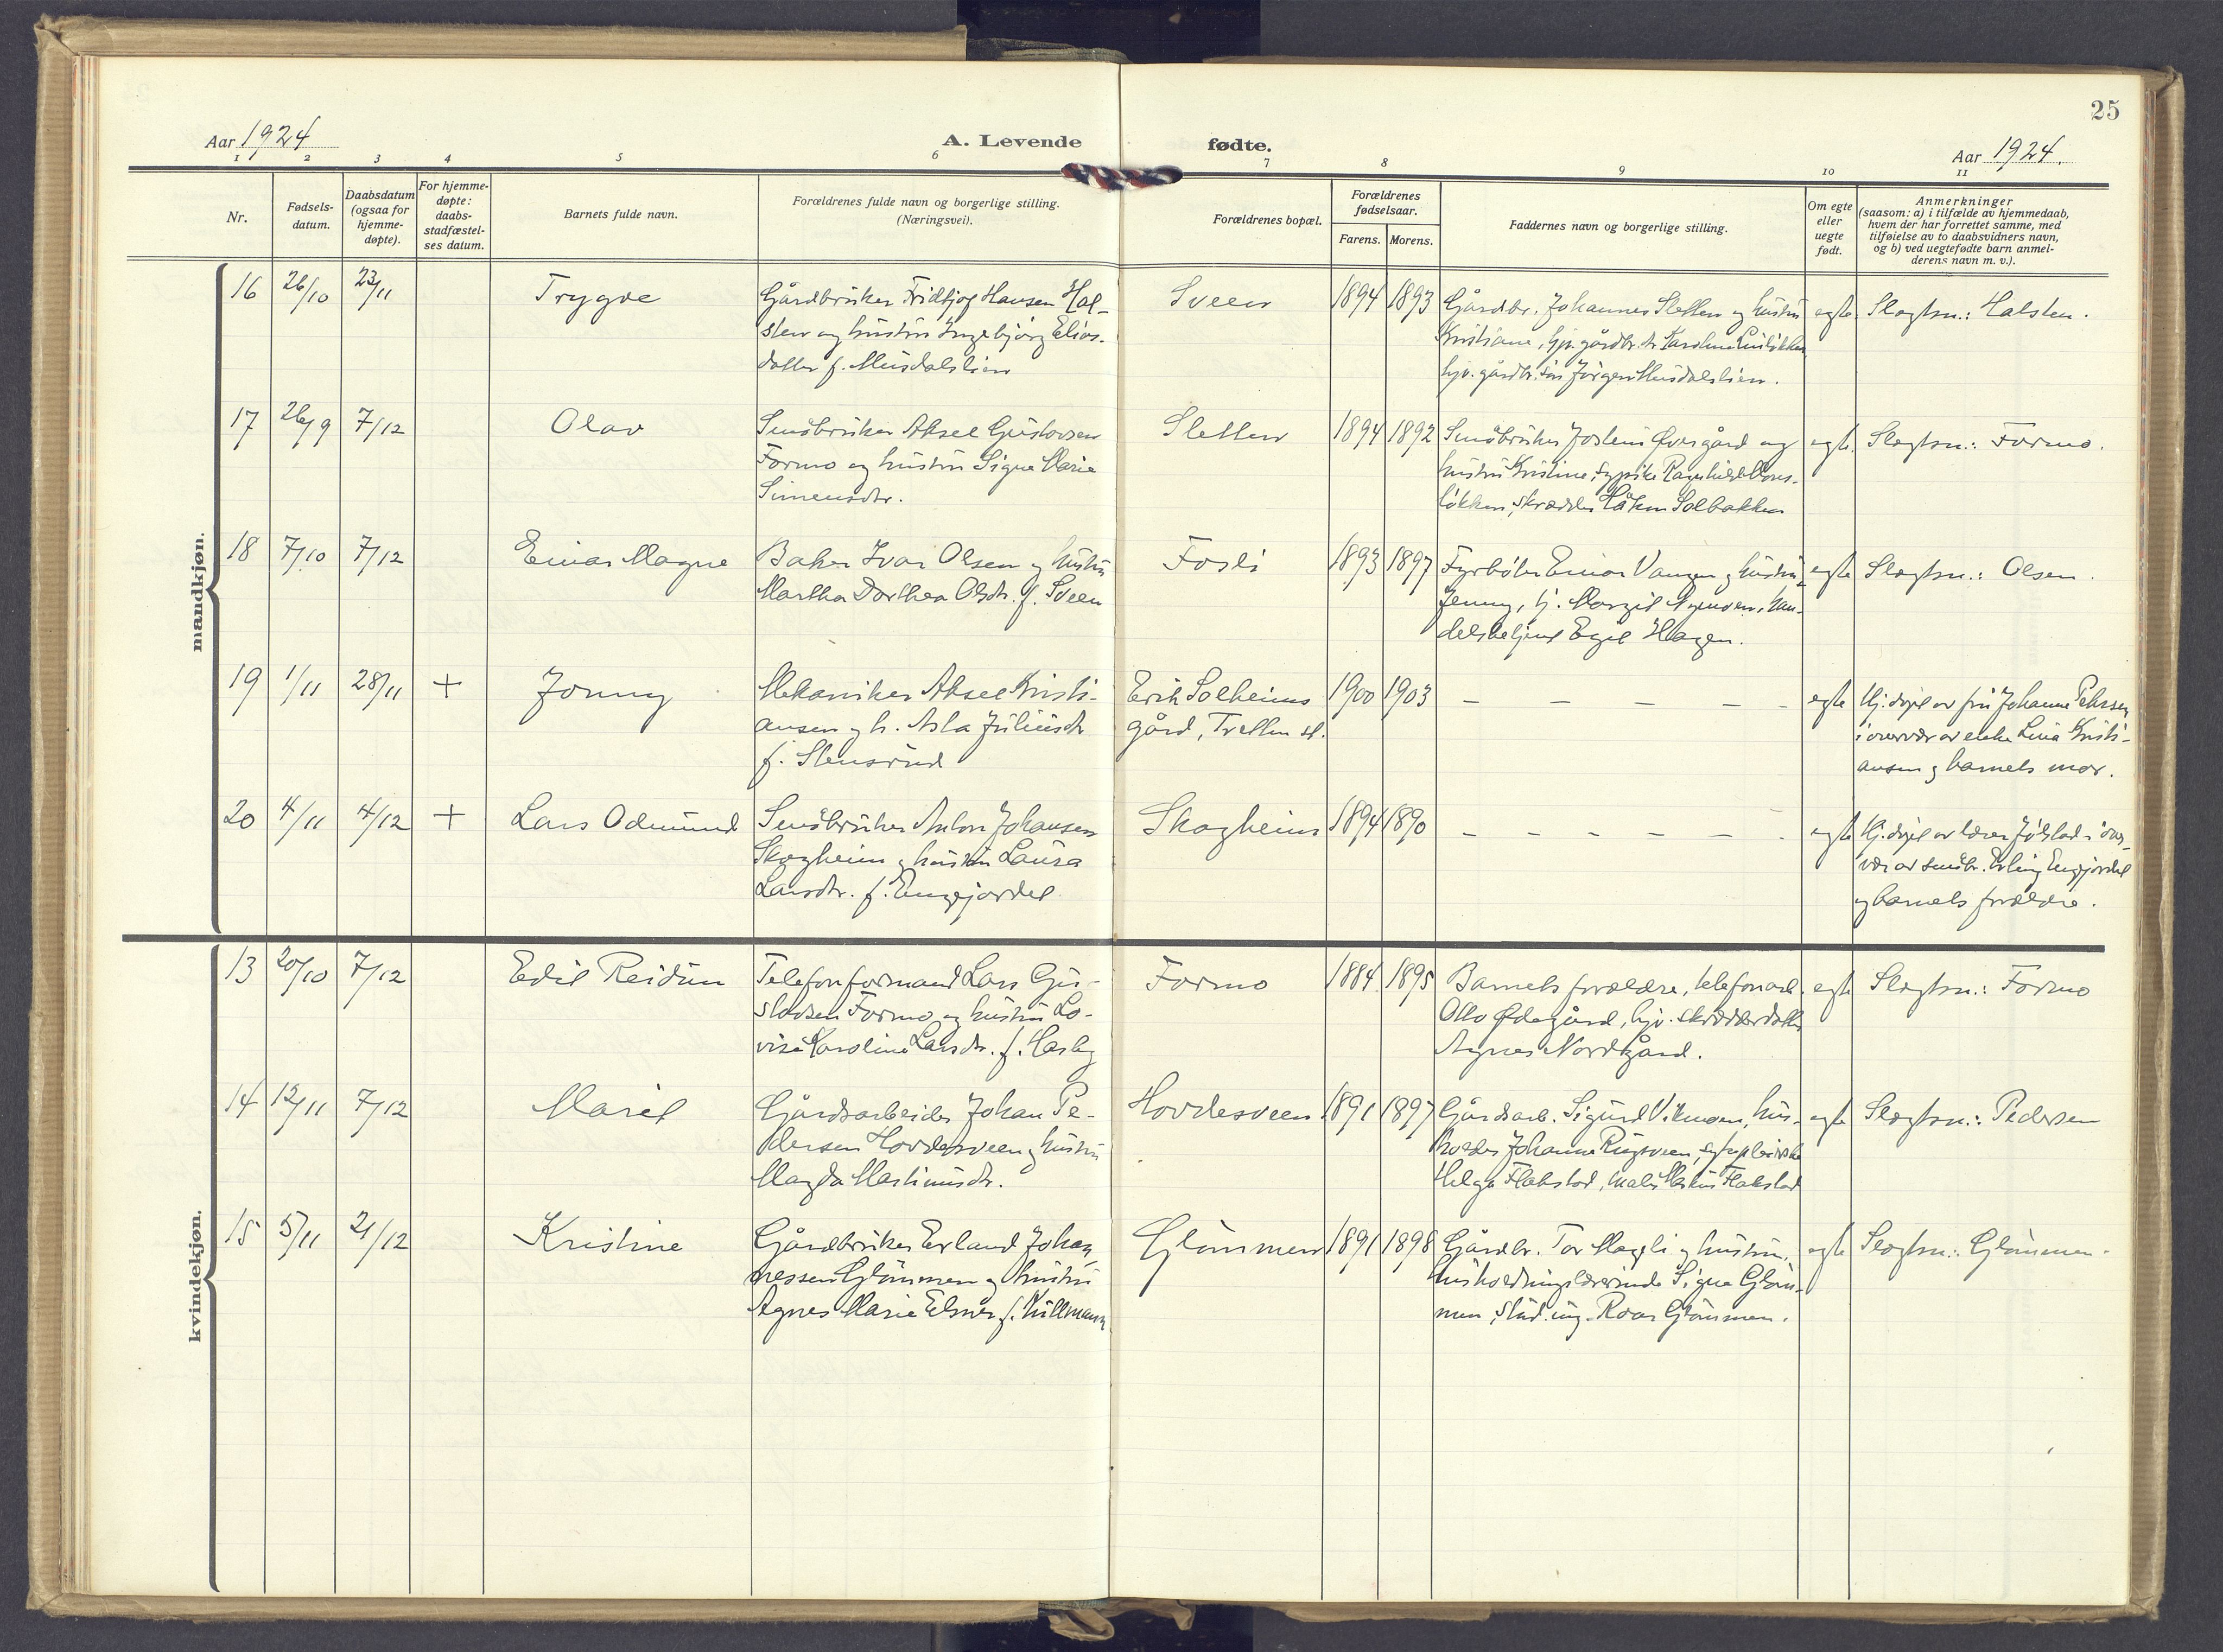 25
Aar 1924
A. Levende
fødte.
Aar 1924.
1 2 3 4 5 6 7 8 9 10 11
Nr.
Fødsels-
datum.
Daabsdatum
(ogsaa for
hjemme-
døpte).
For hjemme-
døpte:
daabs-
stadfæstel-
ses datum.
Barnets fulde navn.
Forældrenes fulde navn og borgerlige stilling.
(Næringsvei).
Forældrenes bopæl.
Forældrenes
fødselsaar.
Farens. Morens.
Faddernes navn og borgerlige stilling.
Om egte
eller
uegte
født.
Anmerkninger
(saasom: a) i tilfælde av hjemmedaab,
hvem der har forrettet samme, med
tilføielse av to daabsvidners navn,
og b) ved uegtefødte barn anmel-
derens navn m. v.).
mandkjøn.
16 26/10 23/11 Trygve
Gårdbruker Fridtjog Hansen Hal-
sten og hustru Ingebjørg Elias-
datter f. Musdalslien
Sveen 1894 1893
Gårdbr. Johannes Sletten og hustru
Kristiane, hjv. gårdbr. dr Karoline
hjv. gårdbr. søn Jørgen Musdalslien.
egte Slegtsn.: Halsten.
17 26/9 7/12 Olav
Småbruker Aksel Gustavsen
Formo og hustru Signe Marie
Simensdtr.
Sletten 1894 1892
Småbruker Jostein Øvergård og
hustru Kristine, sypike Ragnhild
løkken, skrædder Håkon Solbakken
egte. Slegtsn.: Formo.
18 7/10 7/12 Einar Magne
Baker Ivar Olsen og hustru
Martha Dorthea Olsdtr. f. Sveen
Fosli 1893 1897
Fyrbøter Einar Vangen og hustru
Jenny, tj. Margit, han-
delsbetjent Egil Hagen.
egte Slegtsn.: Olsen.
19 1/11 28/11 + Jonny
Mekaniker Aksel Kristi-
ansen og h. Asla Juliusdtr
f. Stensrud
Erik Solheims
gård, Tretten st.
1900 1903
— — — — —
egte Hj. døpt av fru Johanne Petersen
i overvær av enke Lina Kristi-
ansen og barnets mor.
20 4/11 4/12 + Lars Odmund
Småbruker Anton Johansen
Skogheim og hustru Laura
Larsdtr. f. Engejordet
Skogheim 1894 1890
— — — — — —
egte Hj. døpt av lærer Jølstad i over-
vær av småbr. Erling Engjordet
og barnets forældre.
kvindekjøn.
13 20/10 7/12 Edit Reidun
Telefonformand Lars Gu-
stavsen Formo og hustru Lo-
vise Karoline Larsdtr. f. Hasby
Formo 1884 1895
Barnets forældre, telefonarb.
Otto Ødegård, hjv. skrædderdatter
Agnes Nordgård.
egte Slegtsn.: Formo
14 12/11 7/12 Marit
Gårdsarbeider Johan Pe-
dersen Hovdesveen og hustru
Magda Martinusdtr.
Hovdesveen 1891 1897
Gårdsarb. Sigurd Vikmoen, hus-
holder Johanne Rugsveen, sykepleierske
Helga Flakstad, maler Flakstad
egte Slegtsn.: Pedersen
15 5/11 21/12 Kristine
Gårdbruker Erland Johan-
nessen Glømmen og hustru
Agnes Marie Elmer f. Kullmann
Glømmen 1891 1898
Gårdbr. Tor Mageli og hustru,
husholdningslærerinde Signe Gløm-
men, stud. ing. Roar Glømmen.
egte Slegtsn.: Glømmen.